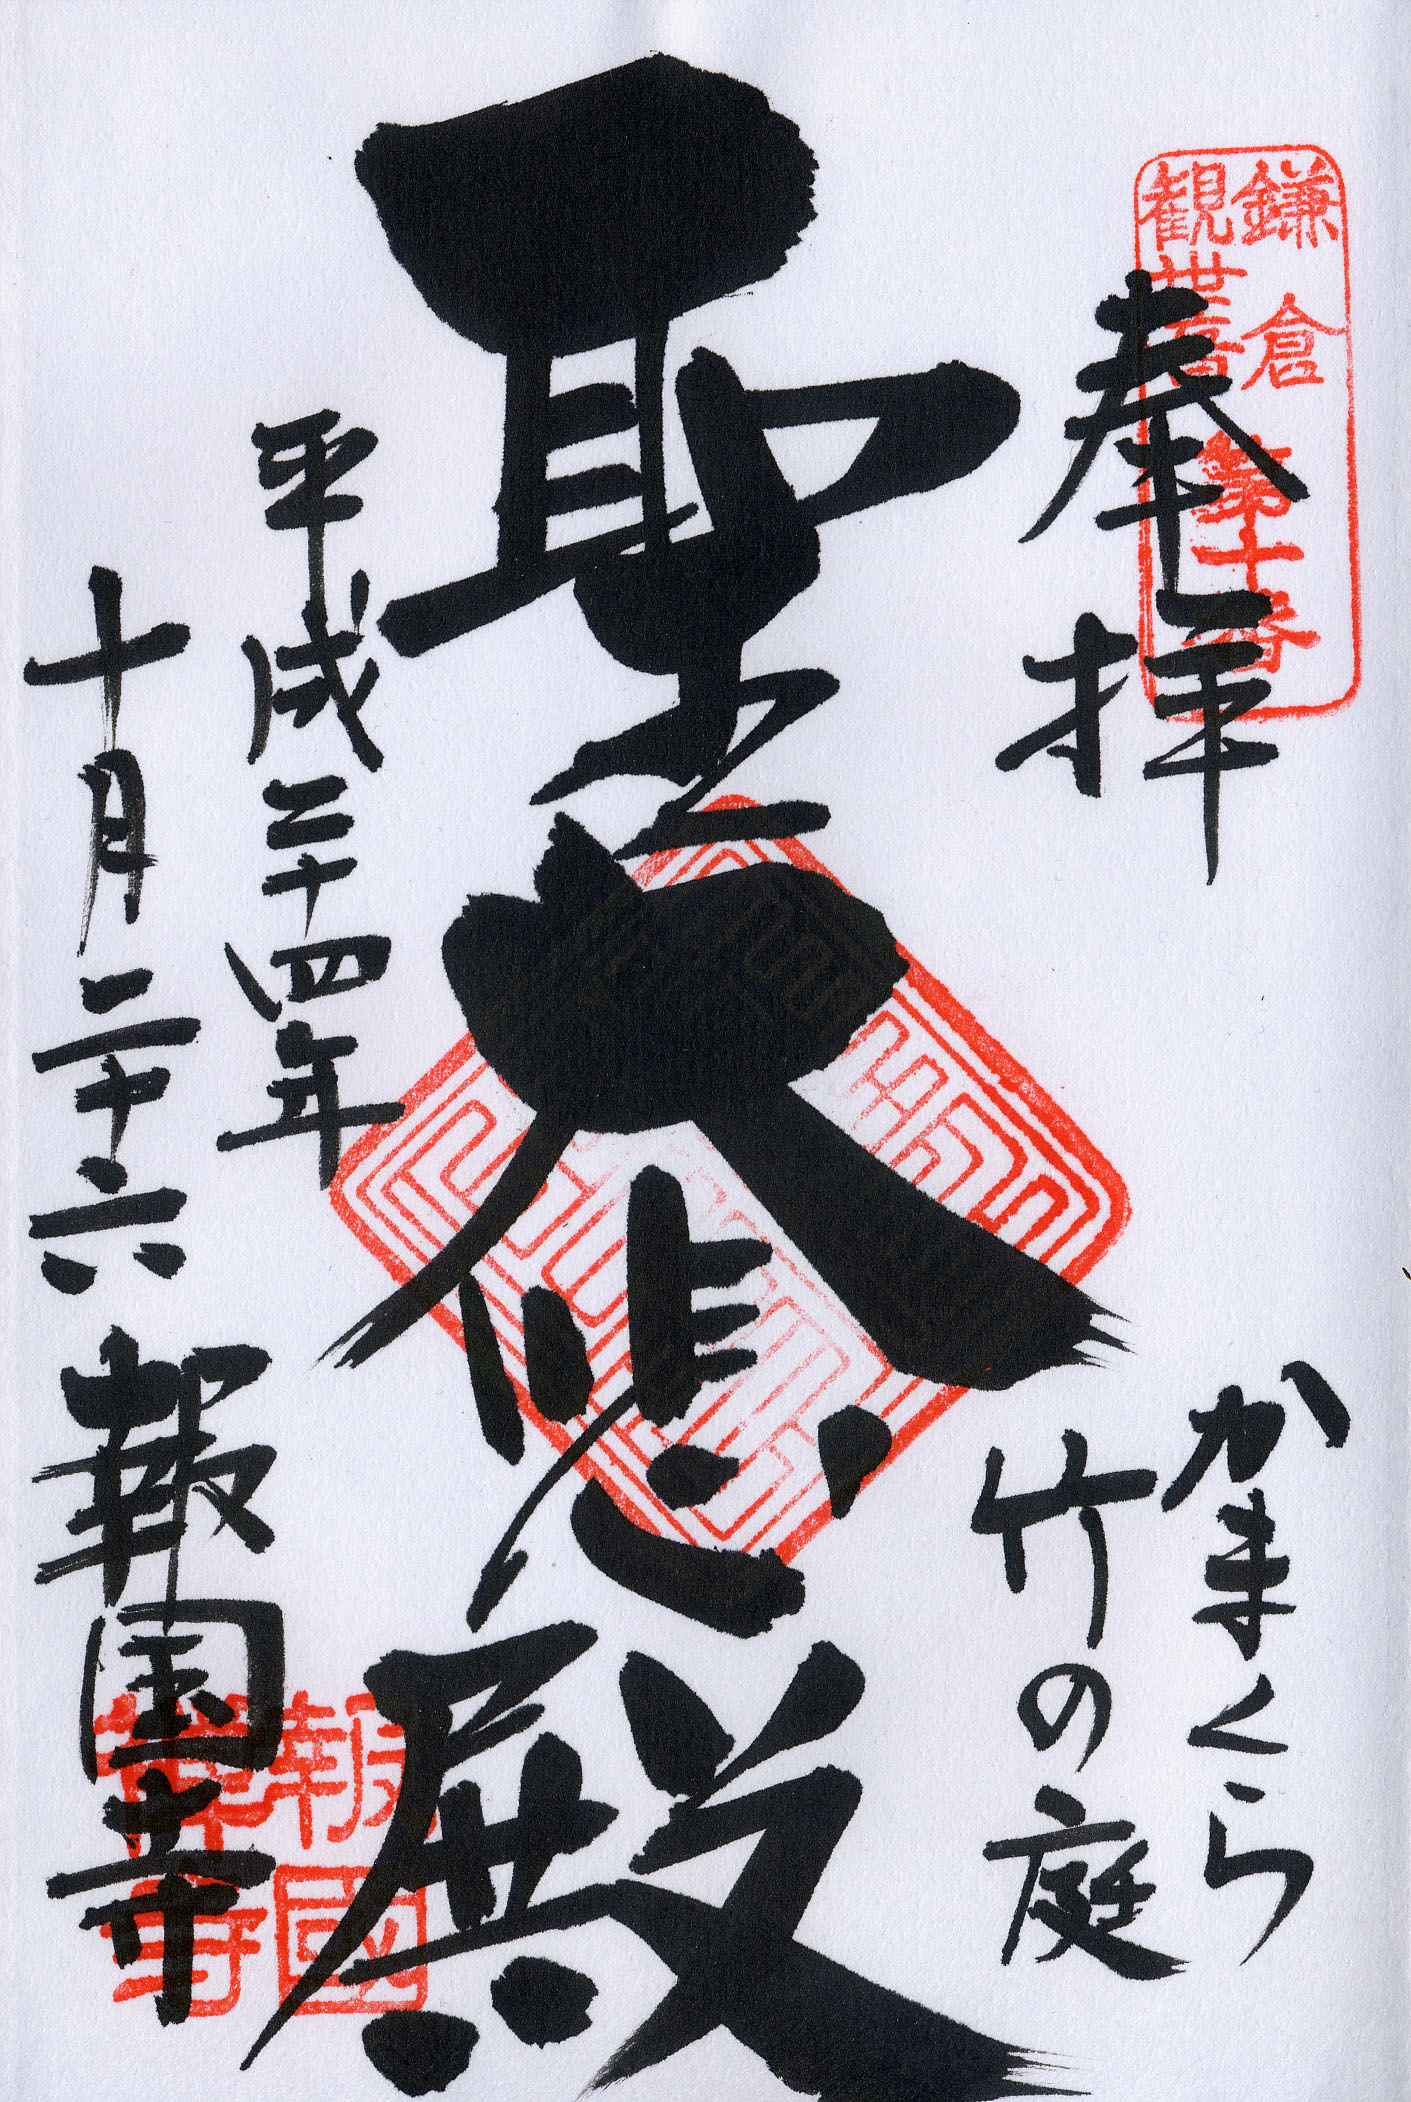 鎌倉
観世音
第十番
奉拝
かまくら
竹の庭
聖大悲殿
平成二十四年
十月二十六
報国寺
報國
禅寺